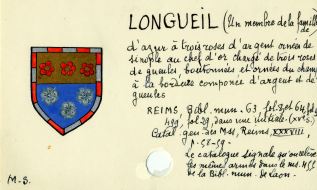 LONGUEIL (Un membre de la famille
d'azur à trois roses d'argent ornées de
sinople au chef d'or chargé de trois roses
de gueules, boutonnées et ornées du champ
à la bordure componée d'argent et de
gueules
REIMS, Bibl. mun. 63, fol. et 64, fol.
499, fol. 29, dans une initiale (XVe s.)
Catal. gén. des Mss, Reims, XXXVIII,
p. 58-59.
Le catalogue signale qu'on relève
les mêmes armes dans le ms. 455
de la Bibl. mun. de Laon.
M.S.